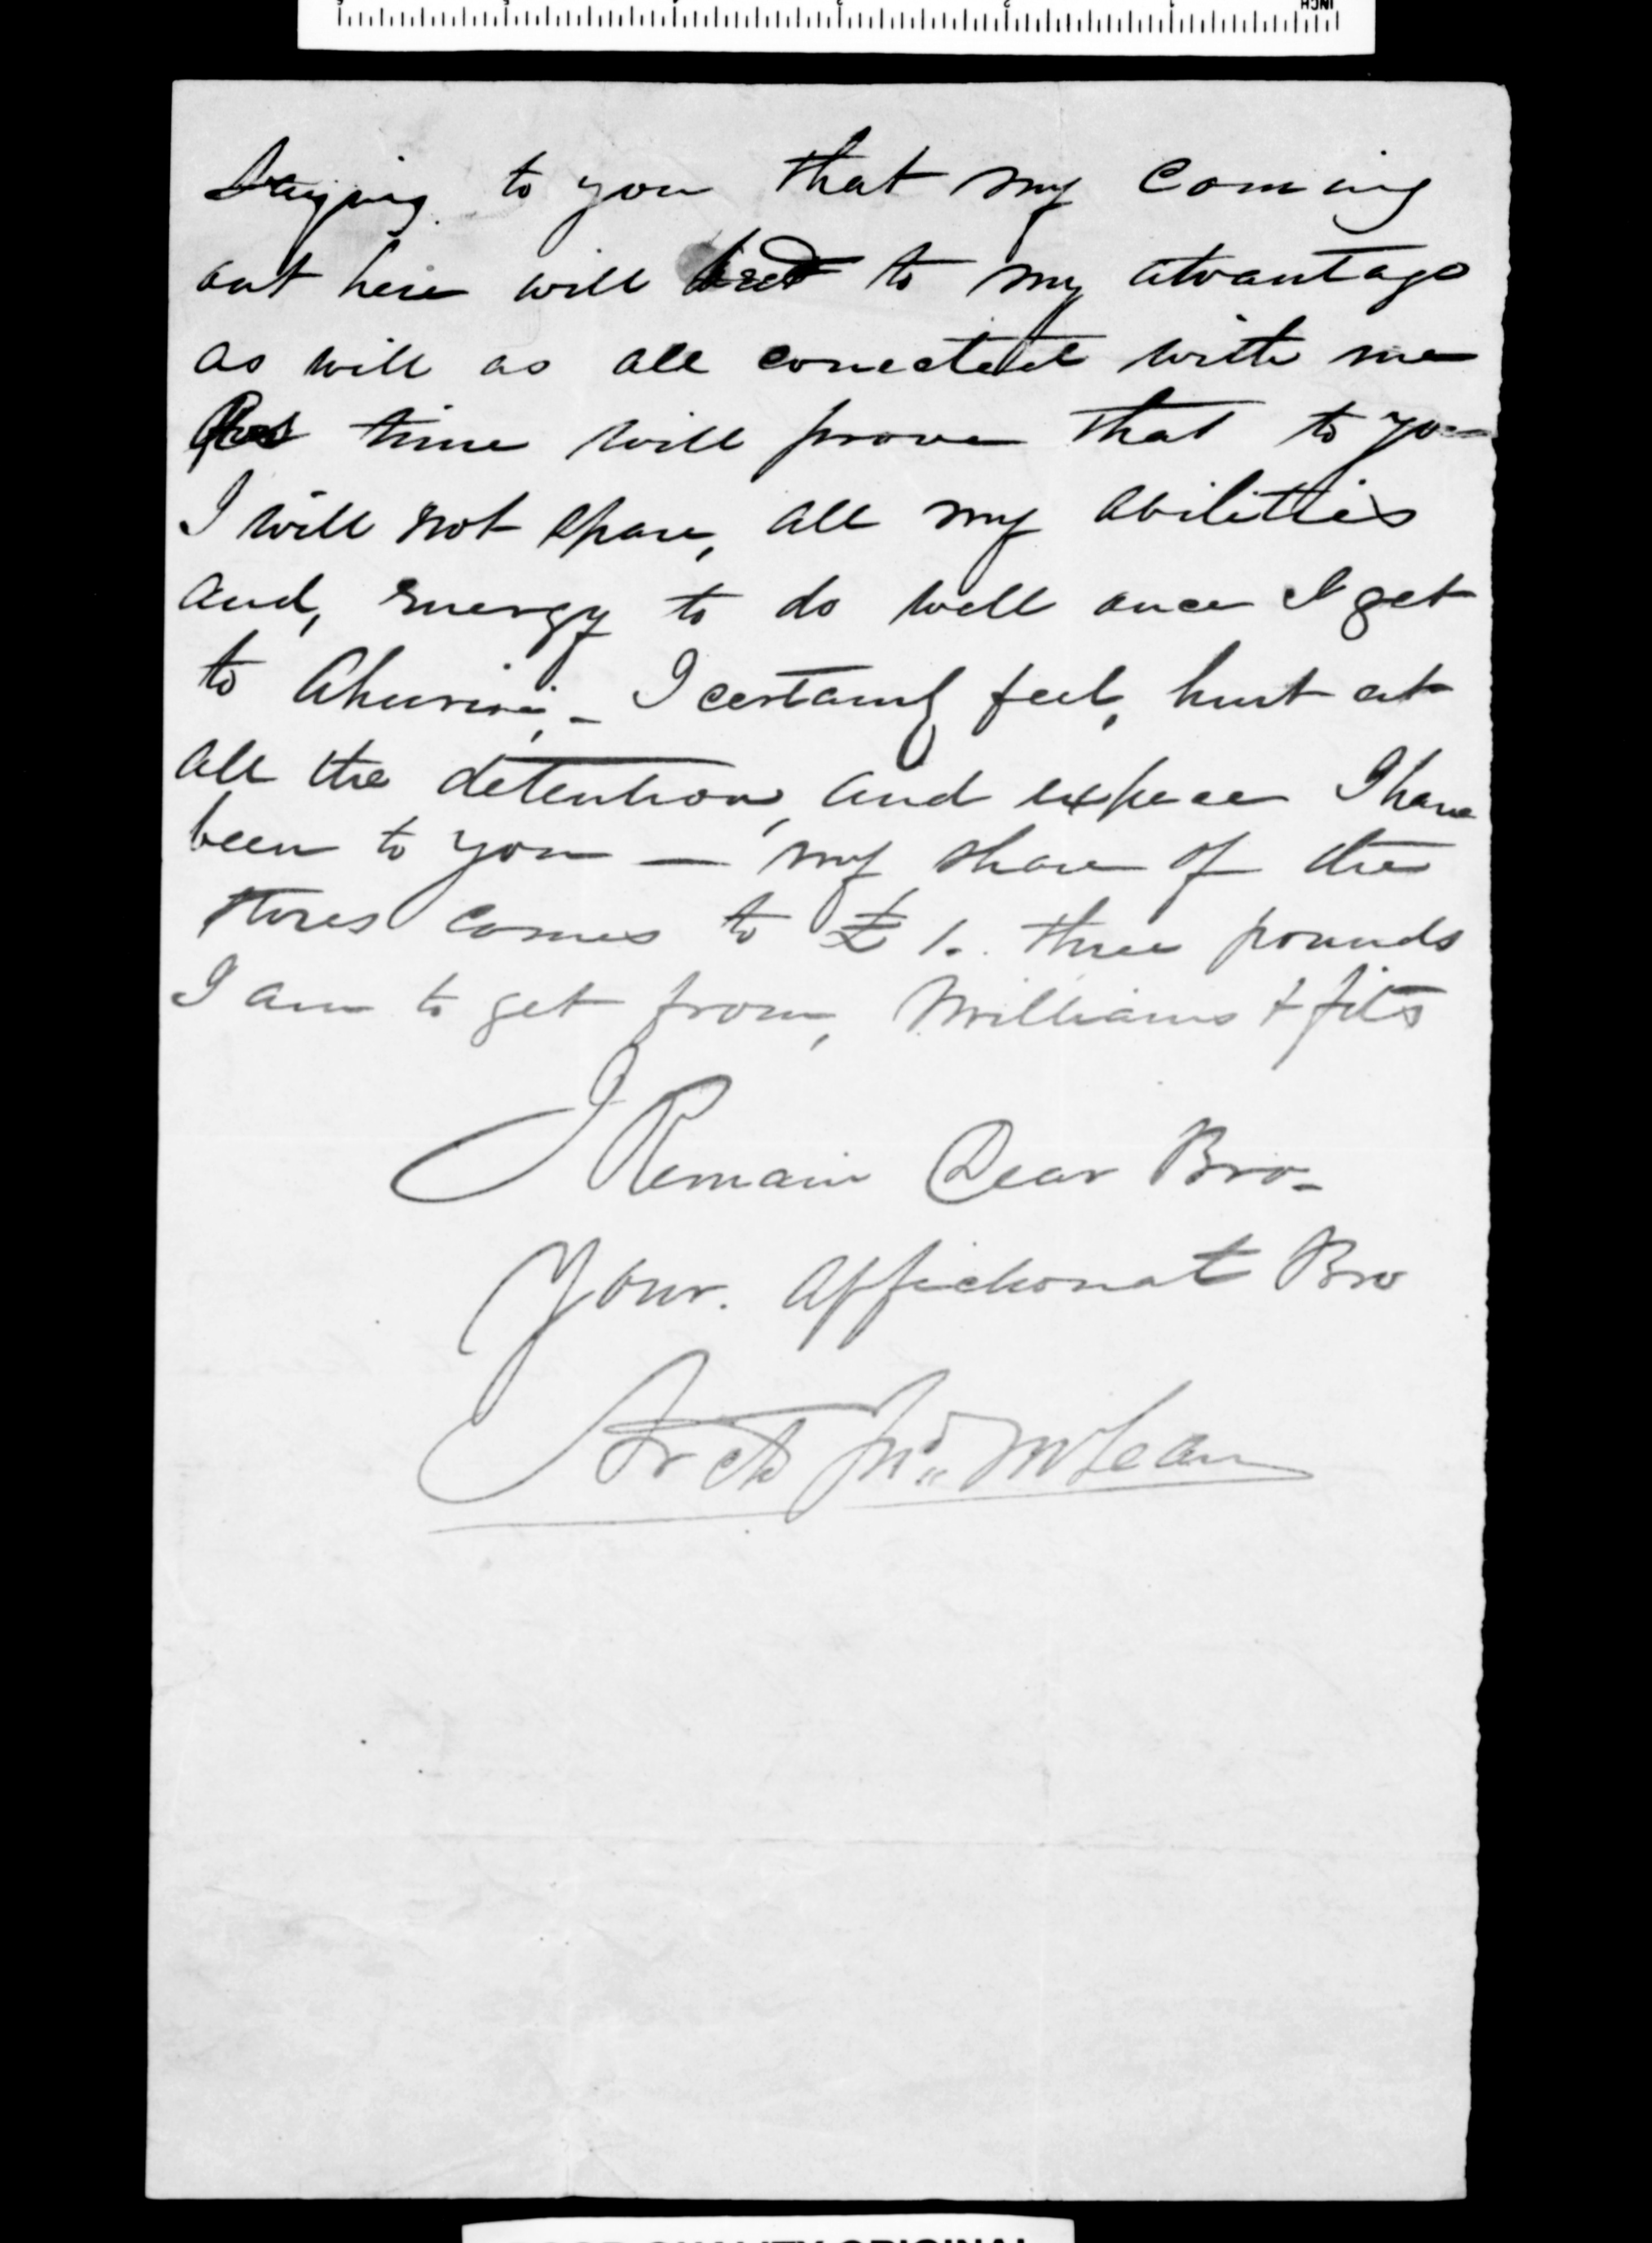 INCH
Saying to you that my coming
out here will to my atvantage
as will as all conected with me
time will prove that to you
I will not spare, all my abilities
and, energy to do well once I get
to Ahuriri, - I certainly feel, hurt at
all the detention, and expece I have
been to you — my share of the
stores comes to £1.. three pounds
I am to get from, Williams & fits
I Remain Dear Bro-
Your. affectionat Bro
Arch Jno. McLean